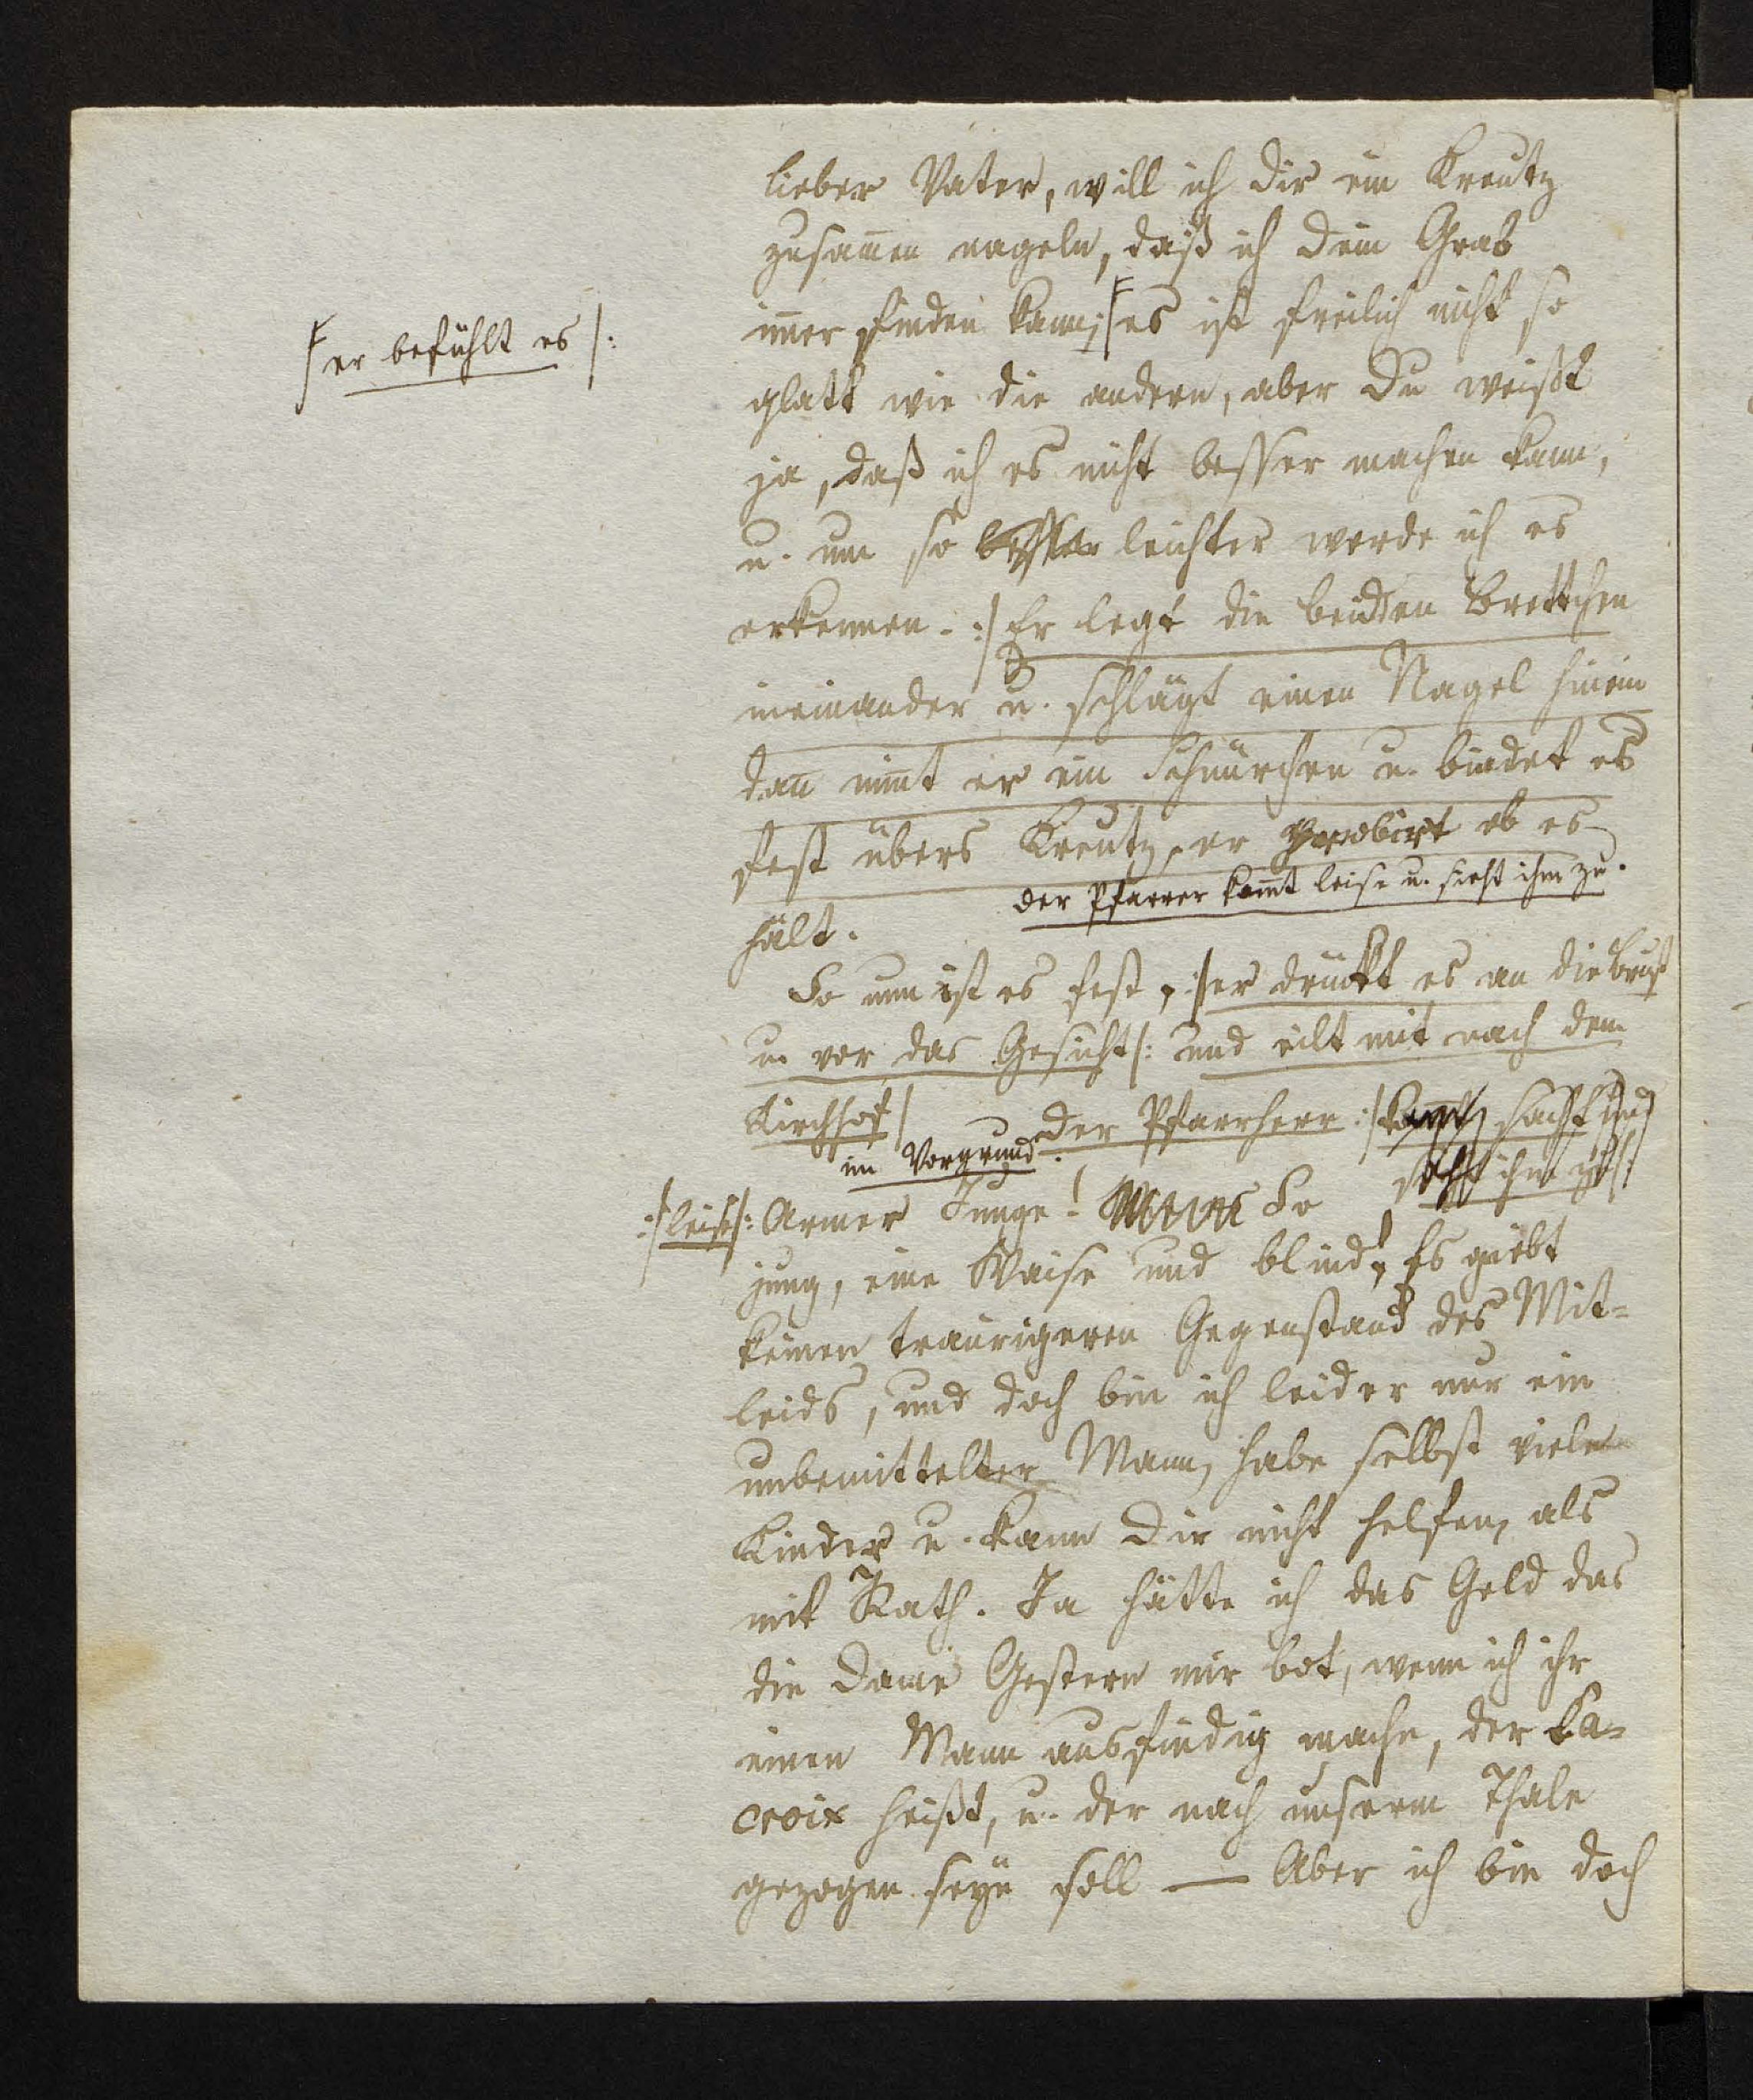 lieber Vater, will ich dir ein Kreutz
zusam̅en nageln, daß ich dein Grab
im̅er finden kann; es ist freilich nicht so
/ er befühlt es /:
glatt wie die andern, aber Du weißt
ja, daß ich es nicht besser machen kann,
u. um so besser leichter werde ich es
erkennen. :/ Er legt die beiden Brettchen
ineinander u. schlägt einen Nagel hinein
dan̅ nim̅t er ein Schnürchen u. bindet es
fest übers Kreutz, er probirt ob es
der Pfarrer kom̅t leise u. sieht ihm zu.
hält.
So nun ist es fest, :/ er drückt es an die Brust
u. vor das Gesicht /: und eilt mit nach dem
Kirchhof / der Pfarrherr :/ kom̅t sacht und
im Vorgrund. sieht ihm zu /:
:/ leise /: Armer Junge! So
jung, eine Waise und blind! Es giebt
keinen traurigeren Gegenstand des Mit-
leids, und doch bin ich leider nur ein
unbemittelter Mann, habe selbst viele
Kinder u. kann Dir nicht helfen, als
mit Rath. Ja hätte ich das Geld das
die Dame Gestern mir bot, wenn ich ihr
einen Mann ausfindig mache, der La-
croix heißt, u. der nach unserm Thale
gezogen seyn soll — Aber ich bin doch